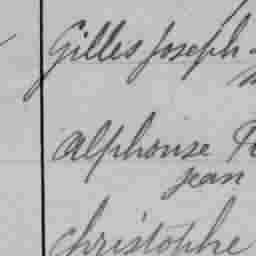 Gilles Joseph
Alphonse
Jean
Christophe